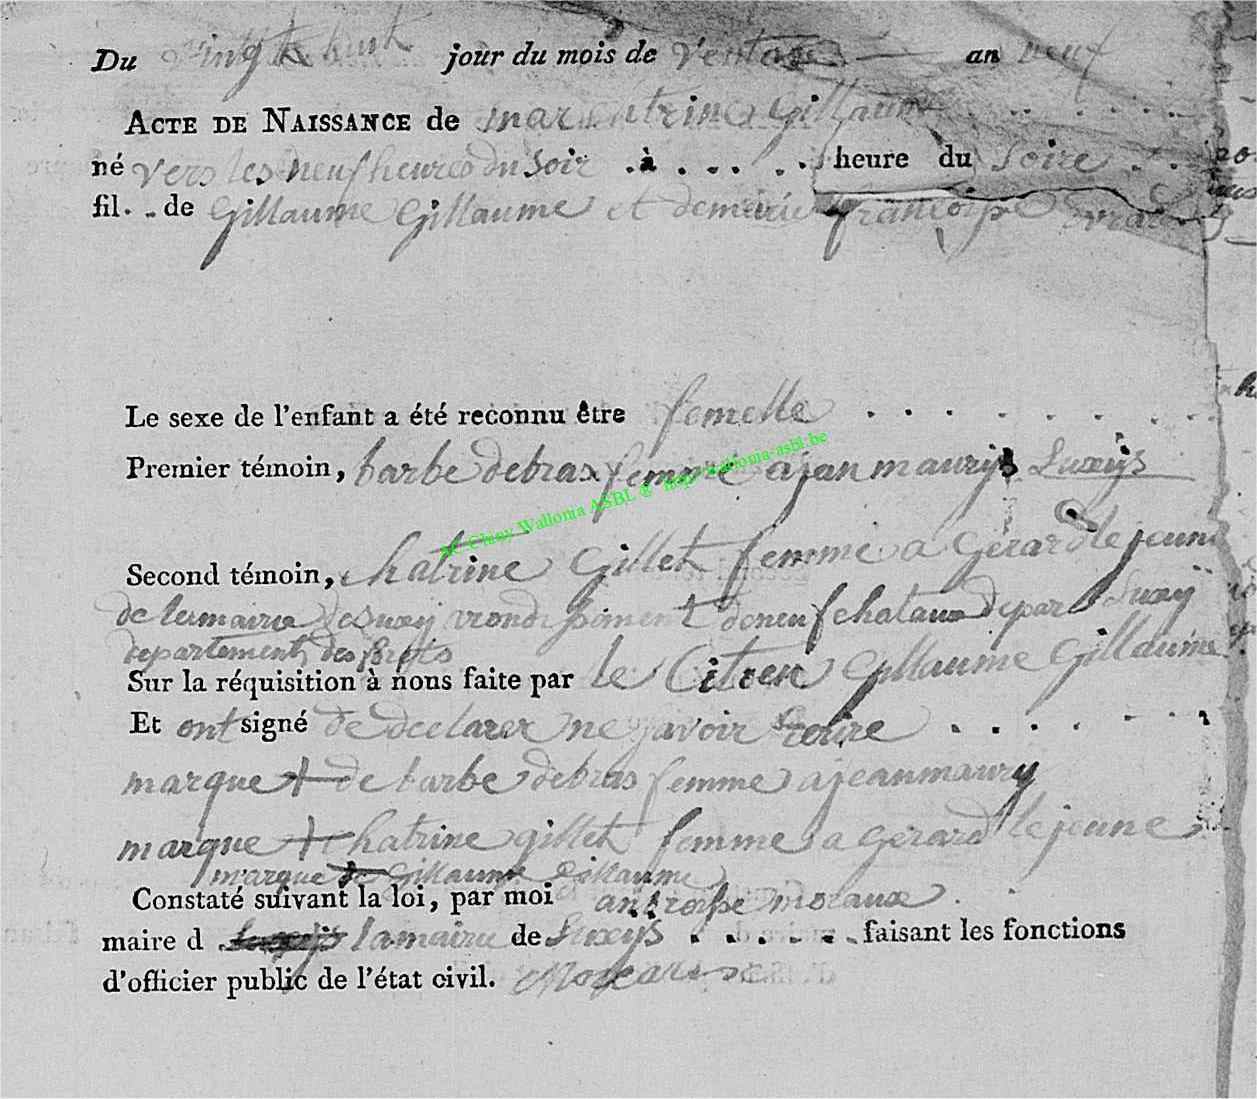 Du vingt huit jour du mois de Ventose an neuf
ACTE DE NAISSANCE de mar catrine Gillaume . . . . .
né vers les neuf heures du Soir . à . . . . . heure du Soire . .
fil. . de Gillaume Gillaume et de marie francoise
Le sexe de l'enfant a été reconnu être femelle . . . . . . . .
Premier témoin, barbe debras femme a jan maury Luxys
AC Chiny Wallonia ASBL
Second témoin, chatrine Gillet femme a Gerard le jeune
de la mairie de Suxy de neufchataux depar Suxy
departement des forets
Sur la réquisition à nous faite par le Citoen Gillaume Gillaume
Et ont signé de declarer ne savoir . . . . . .
marque + de barbe debras femme a jean maury
marque + chatrine gillet femme a gerard le jeune
marque de Gillaume Gillaume
Constaté suivant la loi, par moi moraux .
maire d la mairie de Suxys . . . . . . faisant les fonctions
d'officier public de l'état civil.